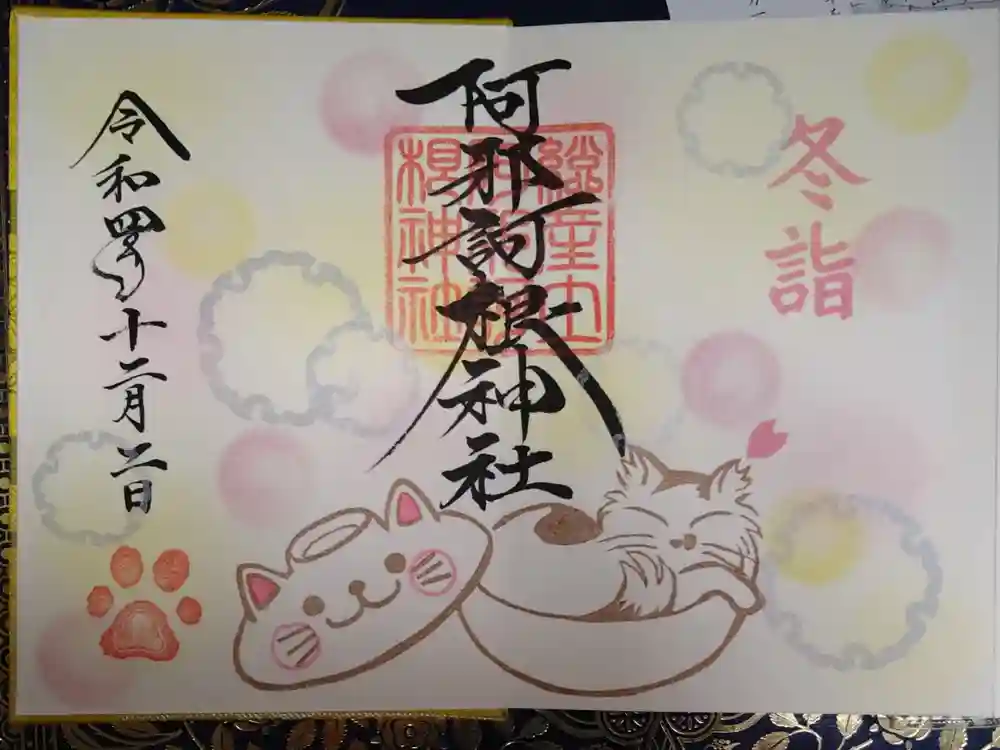 冬詣
阿邪訶根神社
根神社
令和四年十二月二日